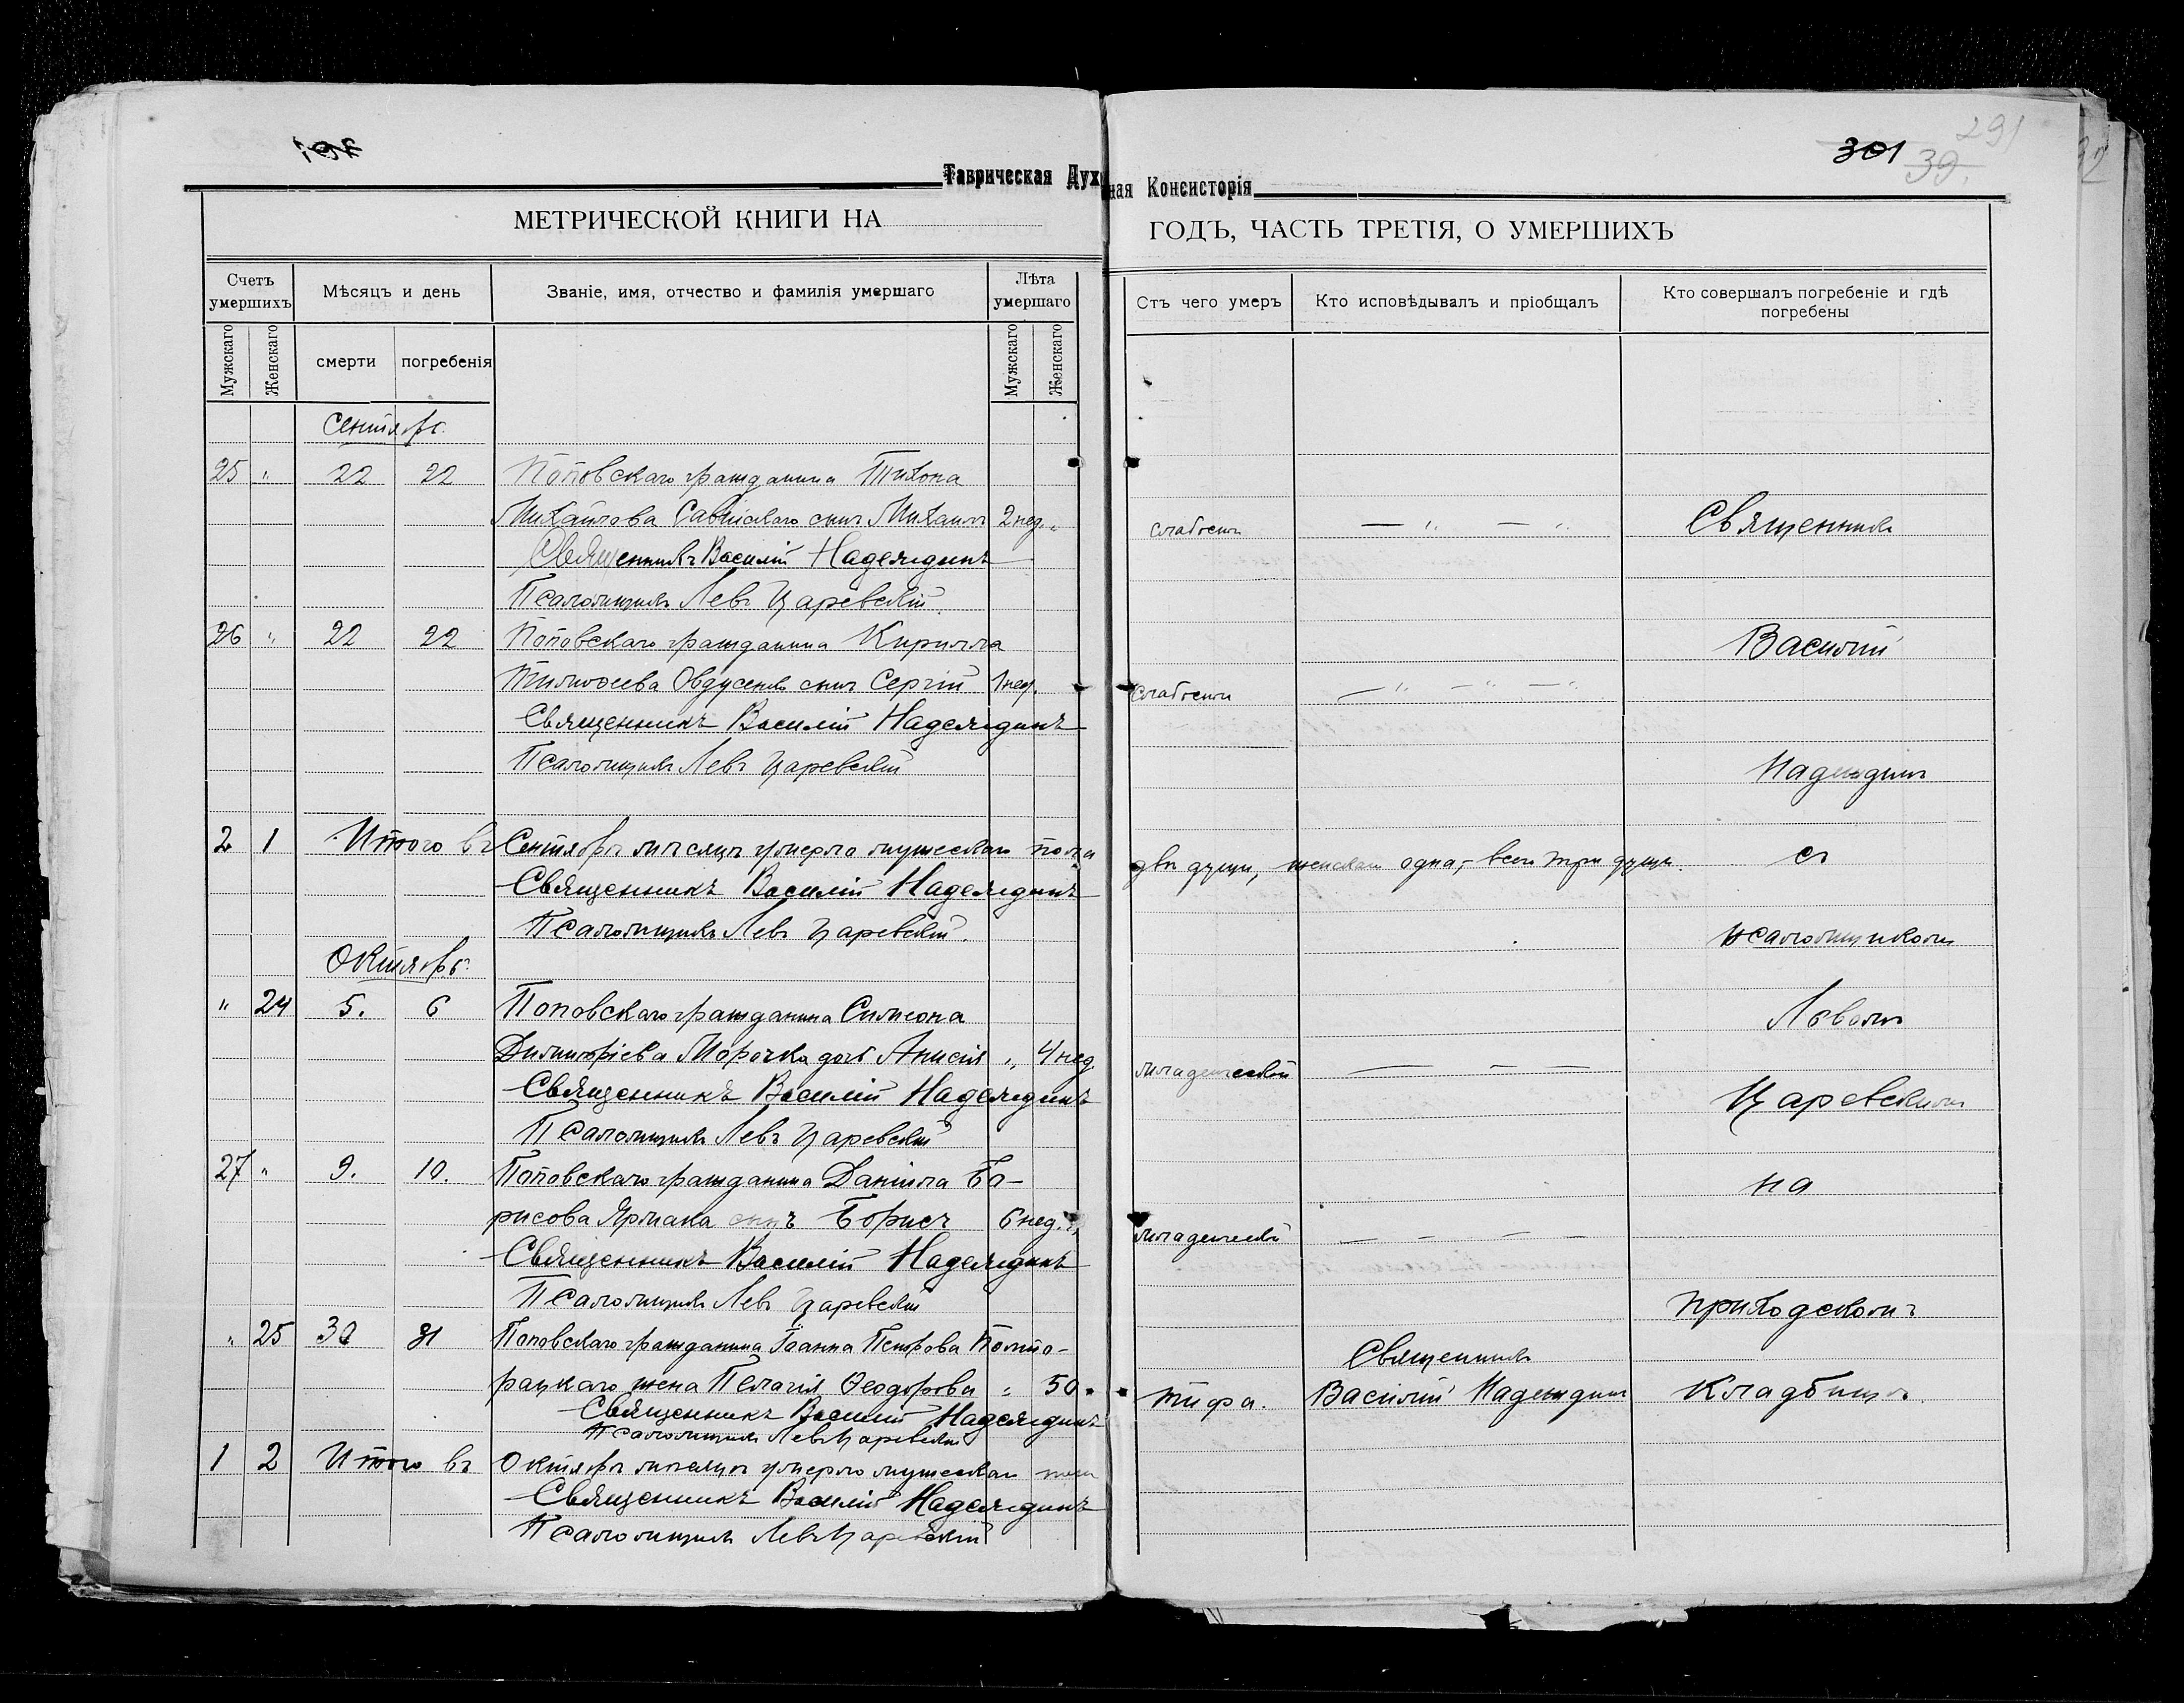 301
291
39.
Таврическая Духо
ная Консисторія
МЕТРИЧЕСКОЙ КНИГИ НА
ГОДЪ, ЧАСТЬ ТРЕТІЯ, О УМЕРШИХЪ
Счетъ умершихъ
Мѣсяцъ и день
Званіе, имя, отчество и фамилія умершаго
Лѣта умершаго
Отъ чего умеръ
Кто исповѣдывалъ и пріобщалъ
Кто совершалъ погребеніе и гдѣ погребены
Мужскаго
Женскаго
смерти
погребенія
Мужскаго
Женскаго
Сентябрь.
25 " 22 22 Поповскаго гражданина Тихона
Михайлова сынъ Михаилъ 2 нед. "
слабости — " — "
Священникъ
Священникъ Василій Надеждинъ
Псаломщикъ Левъ Царевскій.
26 " 22 22 Поповскаго гражданина Кирилла
Василій
Тимоѳеева Овдусенко сынъ Сергій 1 нед.
слабости — " — " — "
Священникъ Василій Надеждинъ
Псаломщикъ Левъ Царевскій
Надеждинъ
2 1 Итого въ Сентябрѣ мѣсяцѣ умерло мужескаго пола
двѣ души, женскаго одна, – всего три души.
съ
Священникъ Василій Надеждинъ
Псаломщикъ Левъ Царевскій.
псаломщикомъ
Октябрь.
" 24 5. 6 Поповскаго гражданина Симеона
Львомъ
Димитріева Морочка дочь Анисія " 4 нед.
младенческой — — —
Священникъ Василій Надеждинъ
Царевскимъ
Псаломщикъ Левъ Царевскій
27 " 9. 10. Поповскаго гражданина Даніила Бо-
на
рисова Ярмака сынъ Борисъ 6 нед. "
младенческой — — — —
Священникъ Василій Надеждинъ
Псаломщикъ Левъ Царевскій
приходскомъ
" 25 30 31 Поповскаго гражданина Іоанна Петрова Полто-
Священникъ
рацкаго жена Пелагія Ѳеодорова " 50.
тифа.
Василій Надеждинъ
Кладбищѣ.
Священникъ Василій Надеждинъ
Псаломщикъ Левъ Царевскій
1 2 Итого въ Октябрѣ мѣсяцѣ умерло мужескаго пола
Священникъ Василій Надеждинъ
Псаломщикъ Левъ Царевскій